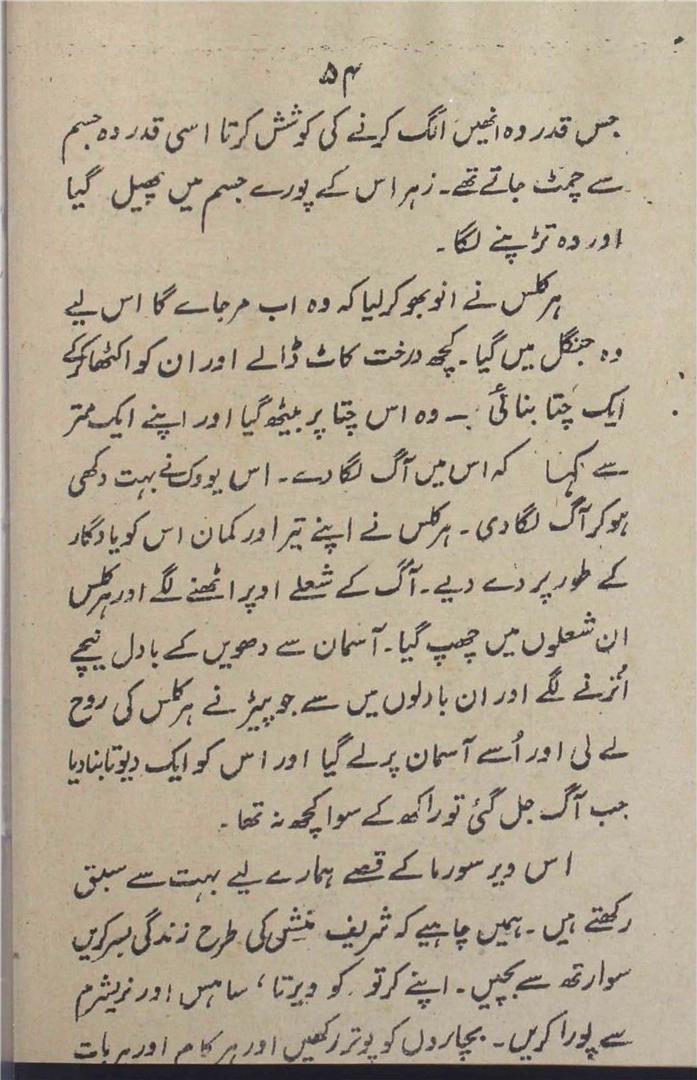 ۵۴
جس قدر وہ انھیں الگ کرنے کی کوشش کرتا اسی قدر وہ جسم
سے چمٹ جاتے تھے۔ زہر اس کے پورے جسم میں پھیل گیا
اور وہ تڑپنے لگا۔
ہرکلس نے انوبھو کر لیا کہ وہ اب مر جاے گا اس لیے
وہ جنگل میں گیا۔ کچھ درخت کاٹ ڈالے اور ان کو اکٹھا کرکے
ایک چتا بنائی ۔ وہ اس چتا پر بیٹھ گیا اور اپنے ایک متر
سے کہا کہ اس میں آگ لگا دے۔ اس یووک نے بہت دکھی
ہو کر آگ لگا دی۔ ہرکلس نے اپنے تیر اور کمان اس کو یادگار
کے طور پر دے دیے۔ آگ کے شعلے اوپر اٹھنے لگے اور ہرکلس
ان شعلوں میں چھپ گیا۔ آسمان سے دھویں کے بادل نیچے
اُترنے لگے اور ان بادلوں میں سے جوپیٹر نے ہرکلس کی روح
لے لی اور اُسے آسمان پر لے گیا اور اس کو ایک دیوتا بنا دیا
جب آگ جل گئی تو راکھ کے سوا کچھ نہ تھا۔
اس ویر سورما کے قصے ہمارے لیے بہت سے سبق
رکھتے ہیں۔ ہمیں چاہیے کہ شریف منشی کی طرح زندگی بسر کریں
سوارتھ سے بچیں۔ اپنے کرتو کو ویرتا، ساہس اور
سے پورا کریں۔ دل کو پوتر رکھیں اور ہر کام اور ہر بات